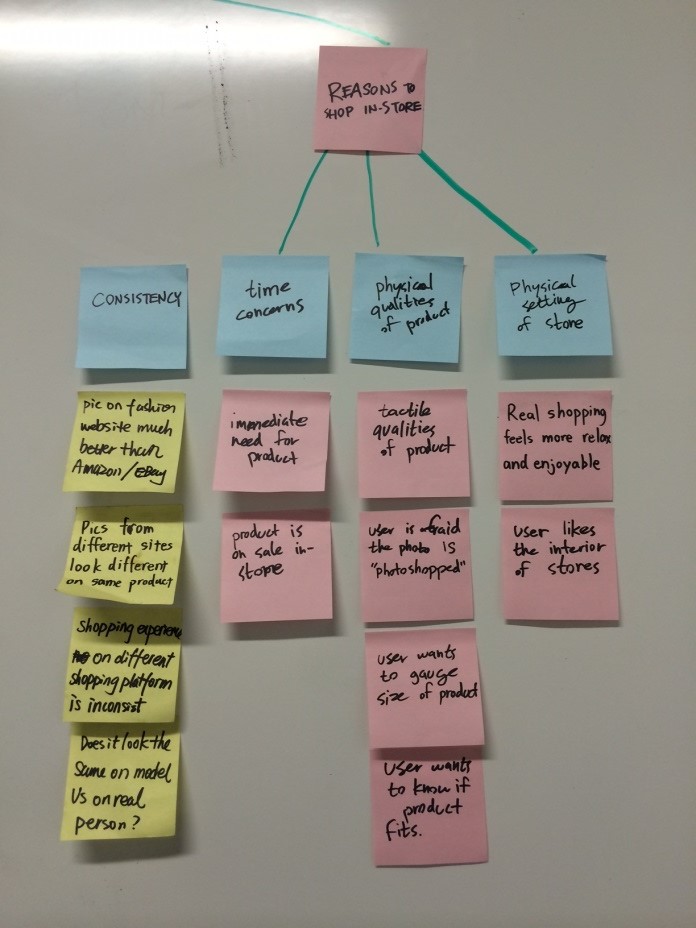 REASONS TO
SHOP IN-STORE
CONSISTENCY
pic on fashion
website much
better than
Amazon/eBay
Pics from
different sites
look different
on same product
Shopping experience
on different
shopping platform
is inconsist
Does it look the
same on model
Vs on real
person?
time
concerns
immediate
need for
product
product is
on sale in-
store
physical
qualities
of product
tactile
qualities
of product
user is afraid
the photo is
"photoshopped"
user wants
to gauge
size of product
user wants
to know if
product
fits.
Physical
setting
of store
Real shopping
feels more relax
and enjoyable
user likes
the interior
of stores